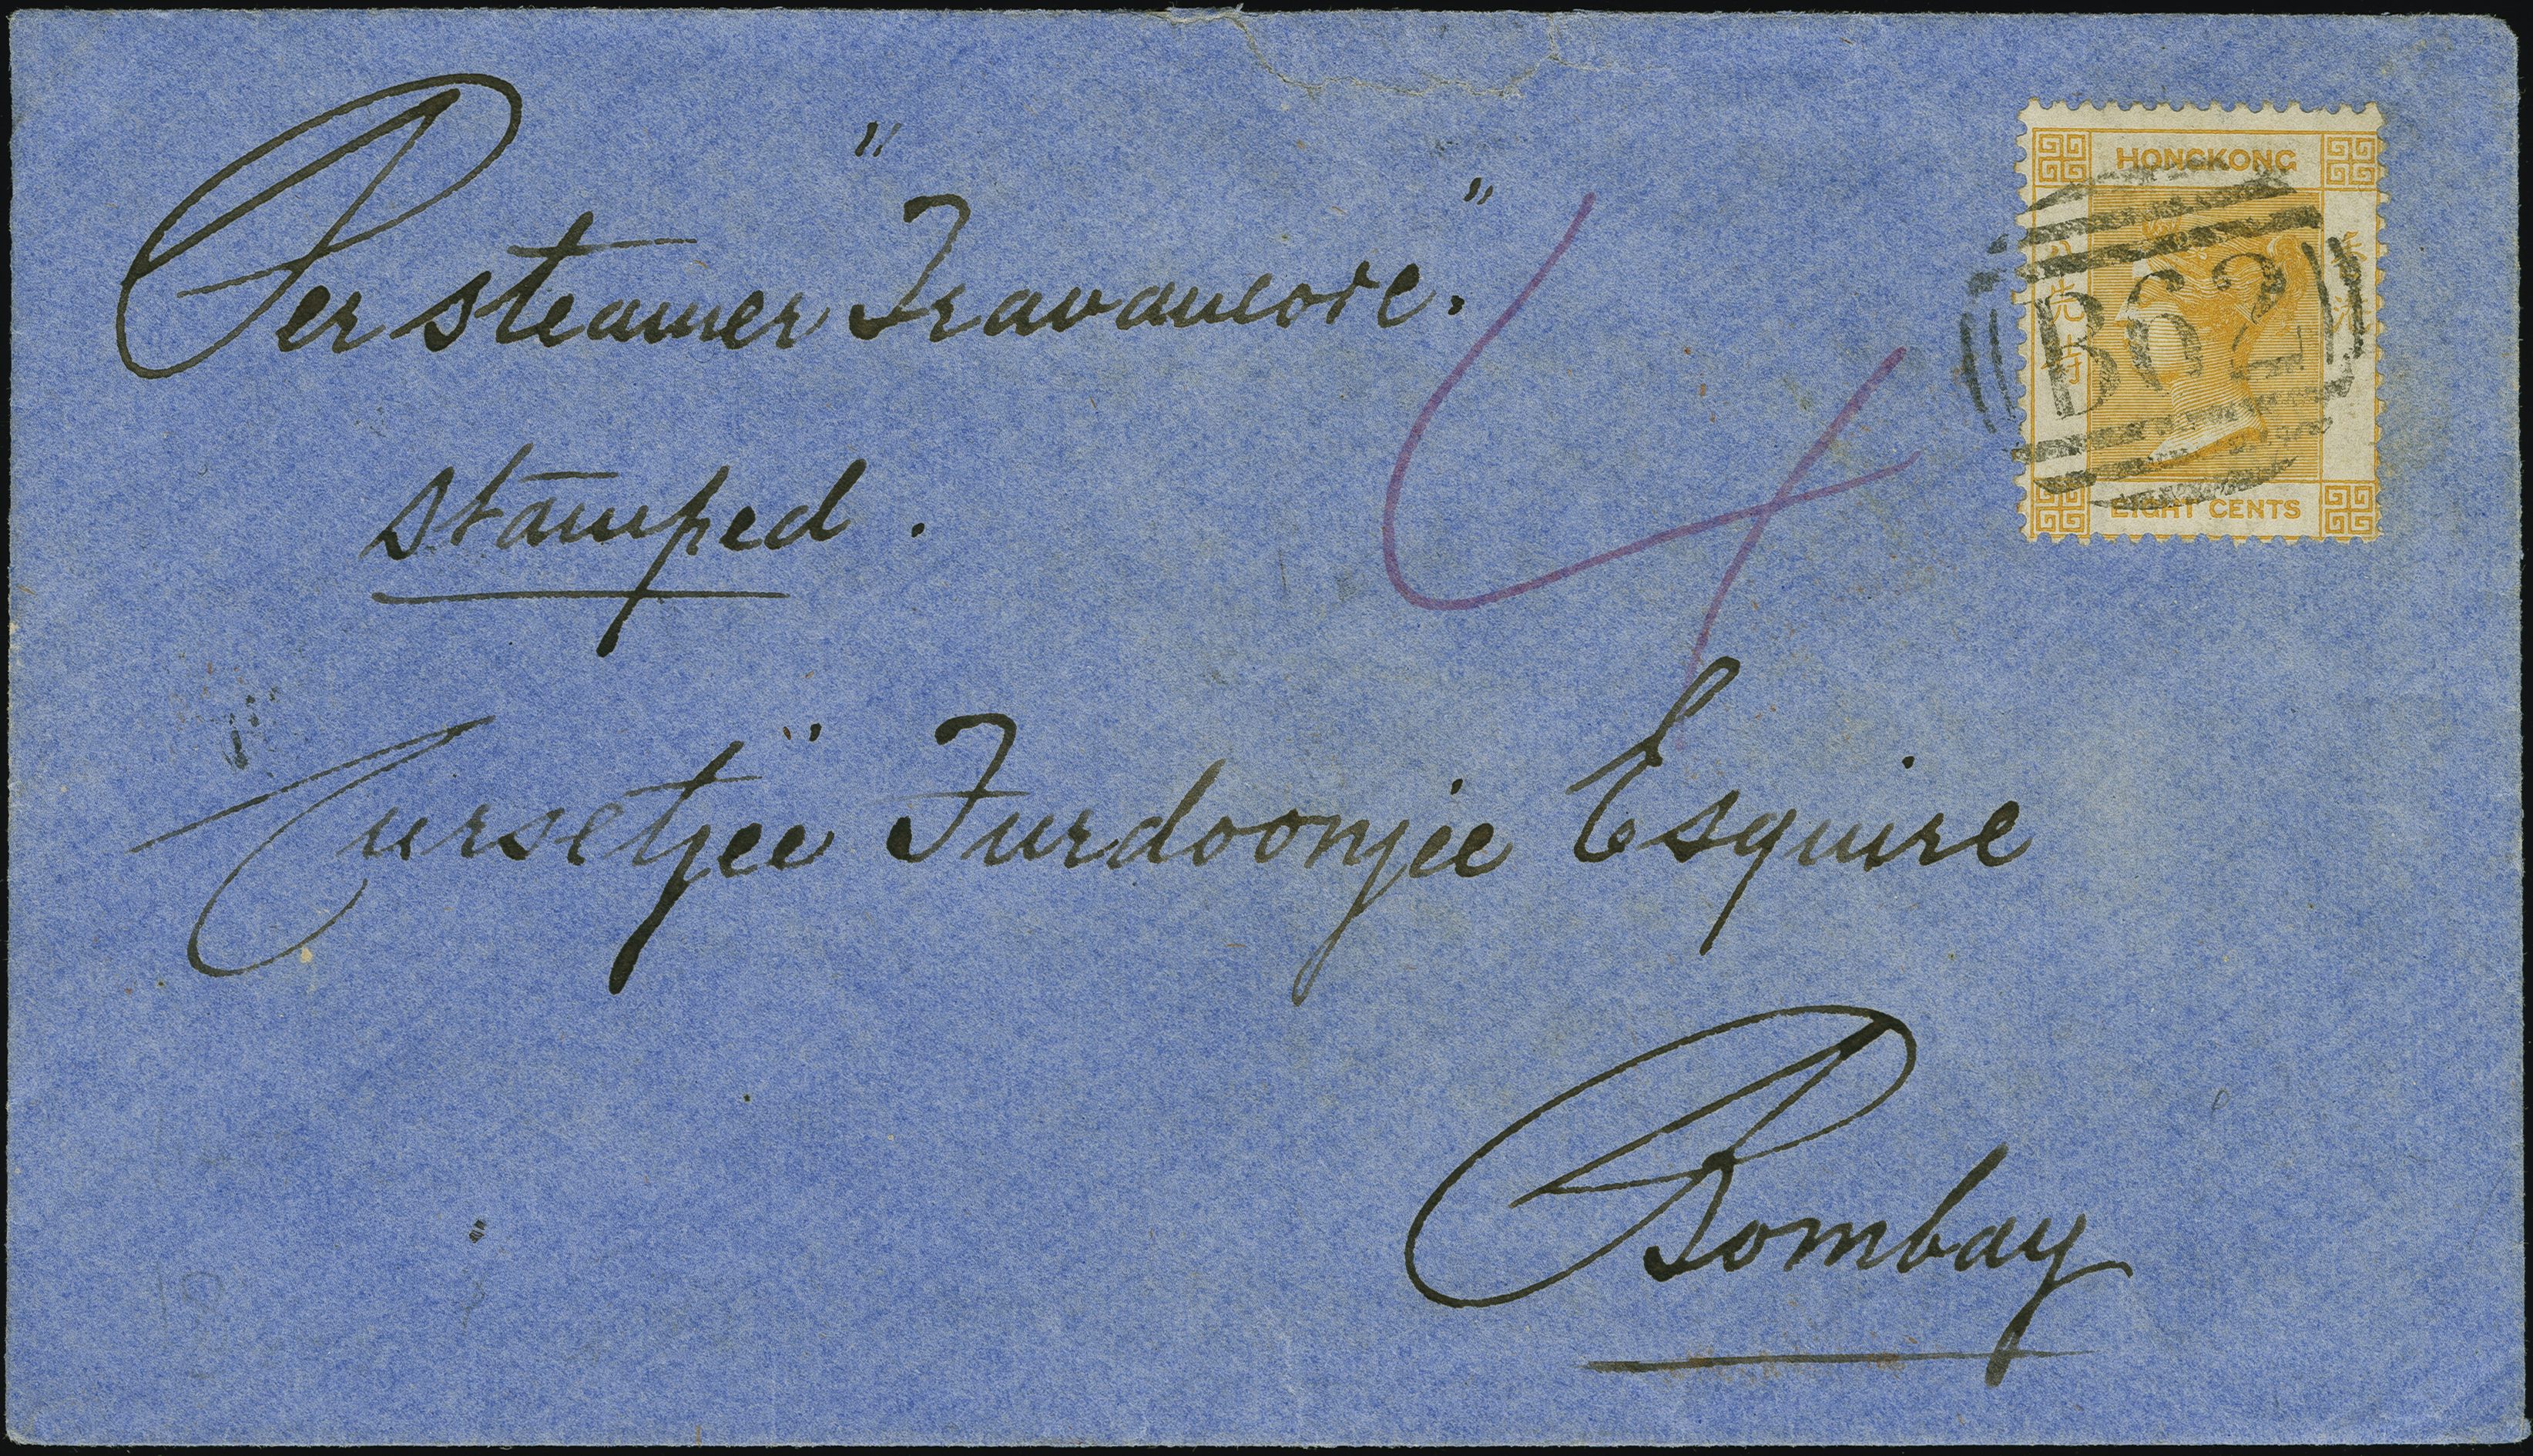 Per steamer "Travancore".
stamped.
Cursetjee Furdoonjee Esquire
Bombay
4
HONGKONG
B62
EIGHT CENTS